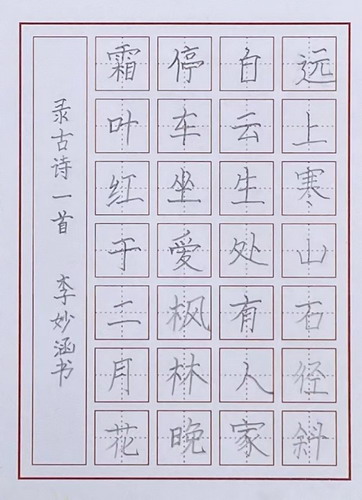 远上寒山石径斜
白云生处有人家
停车坐愛枫林晚
霜叶红于二月花
录古诗一首 李妙涵书